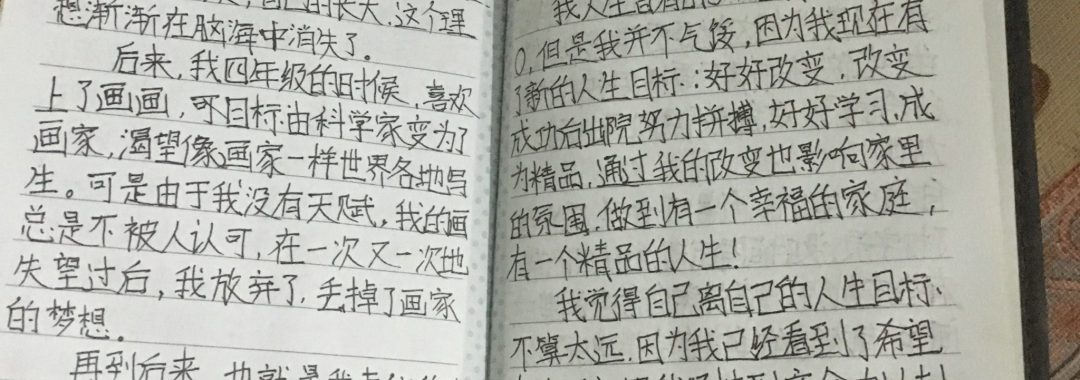 自己的长大,这个理
想渐渐在脑海中消失了。
后来,我四年级的时候,喜欢
上了画画,可目标由科学家变为了
画家,渴望像画家一样世界各地写
生。可是由于我没有天赋,我的画
总是不被人认可,在一次又一次地
失望过后,我放弃了,丢掉了画家
的梦想。
再到后来,也就是我
我人生
0,但是我并不气馁,因为我现在有
了新的人生目标:好好改变,改变
成功后出院努力拼搏,好好学习,成
为精品,通过我的改变也影响家里
的氛围,做到有一个幸福的家庭,
有一个精品的人生!
我觉得自己离自己的人生目标
不算太远,因为我已经看到了希望